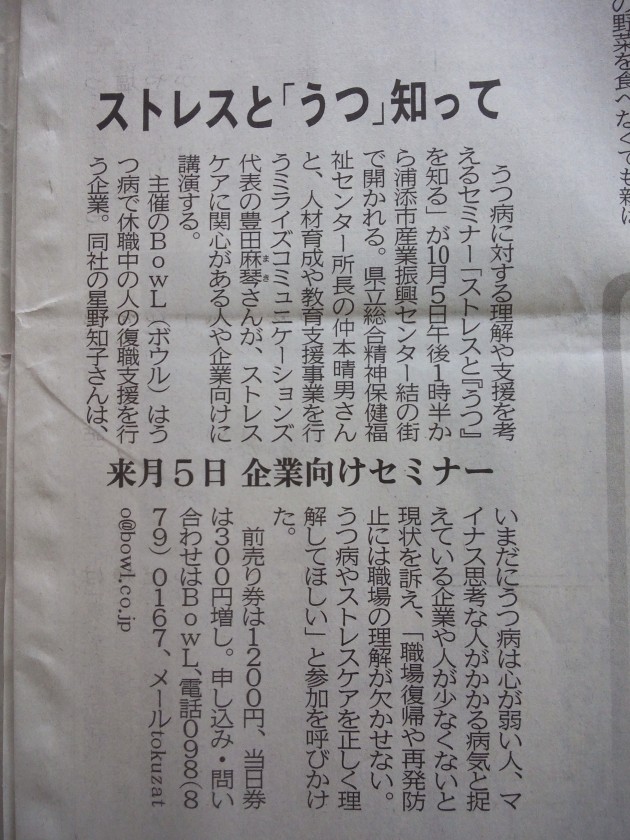 ストレスと「うつ」知って
うつ病に対する理解や支援を考
えるセミナー「ストレスと『うつ』
を知る」が10月5日午後1時半か
ら浦添市産業振興センター結の街
で開かれる。県立総合精神保健福
祉センター所長の仲本晴男さん
と、人材育成や教育支援事業を行
うミライズコミュニケーションズ
代表の豊田麻琴さんが、ストレス
まき
ケアに関心がある人や企業向けに
講演する。
主催のBowL(ボウル)はう
つ病で休職中の人の復職支援を行
う企業。同社の星野知子さんは、
来月5日 企業向けセミナー
いまだにうつ病は心が弱い人、マ
イナス思考な人がかかる病気と捉
えている企業や人が少なくないと
現状を訴え、「職場復帰や再発防
止には職場の理解が欠かせない。
うつ病やストレスケアを正しく理
解してほしい」と参加を呼びかけ
た。
前売り券は1200円、当日券
は300円増し。申し込み・問い
合わせはBowL、電話098(8
79)0167、メールtokuzat
o@bowl.co.jp
の野菜を食べなくても新